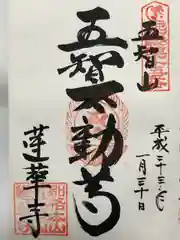 五智山
五智不動尊
蓮華寺
平成二十三年
一月三十日